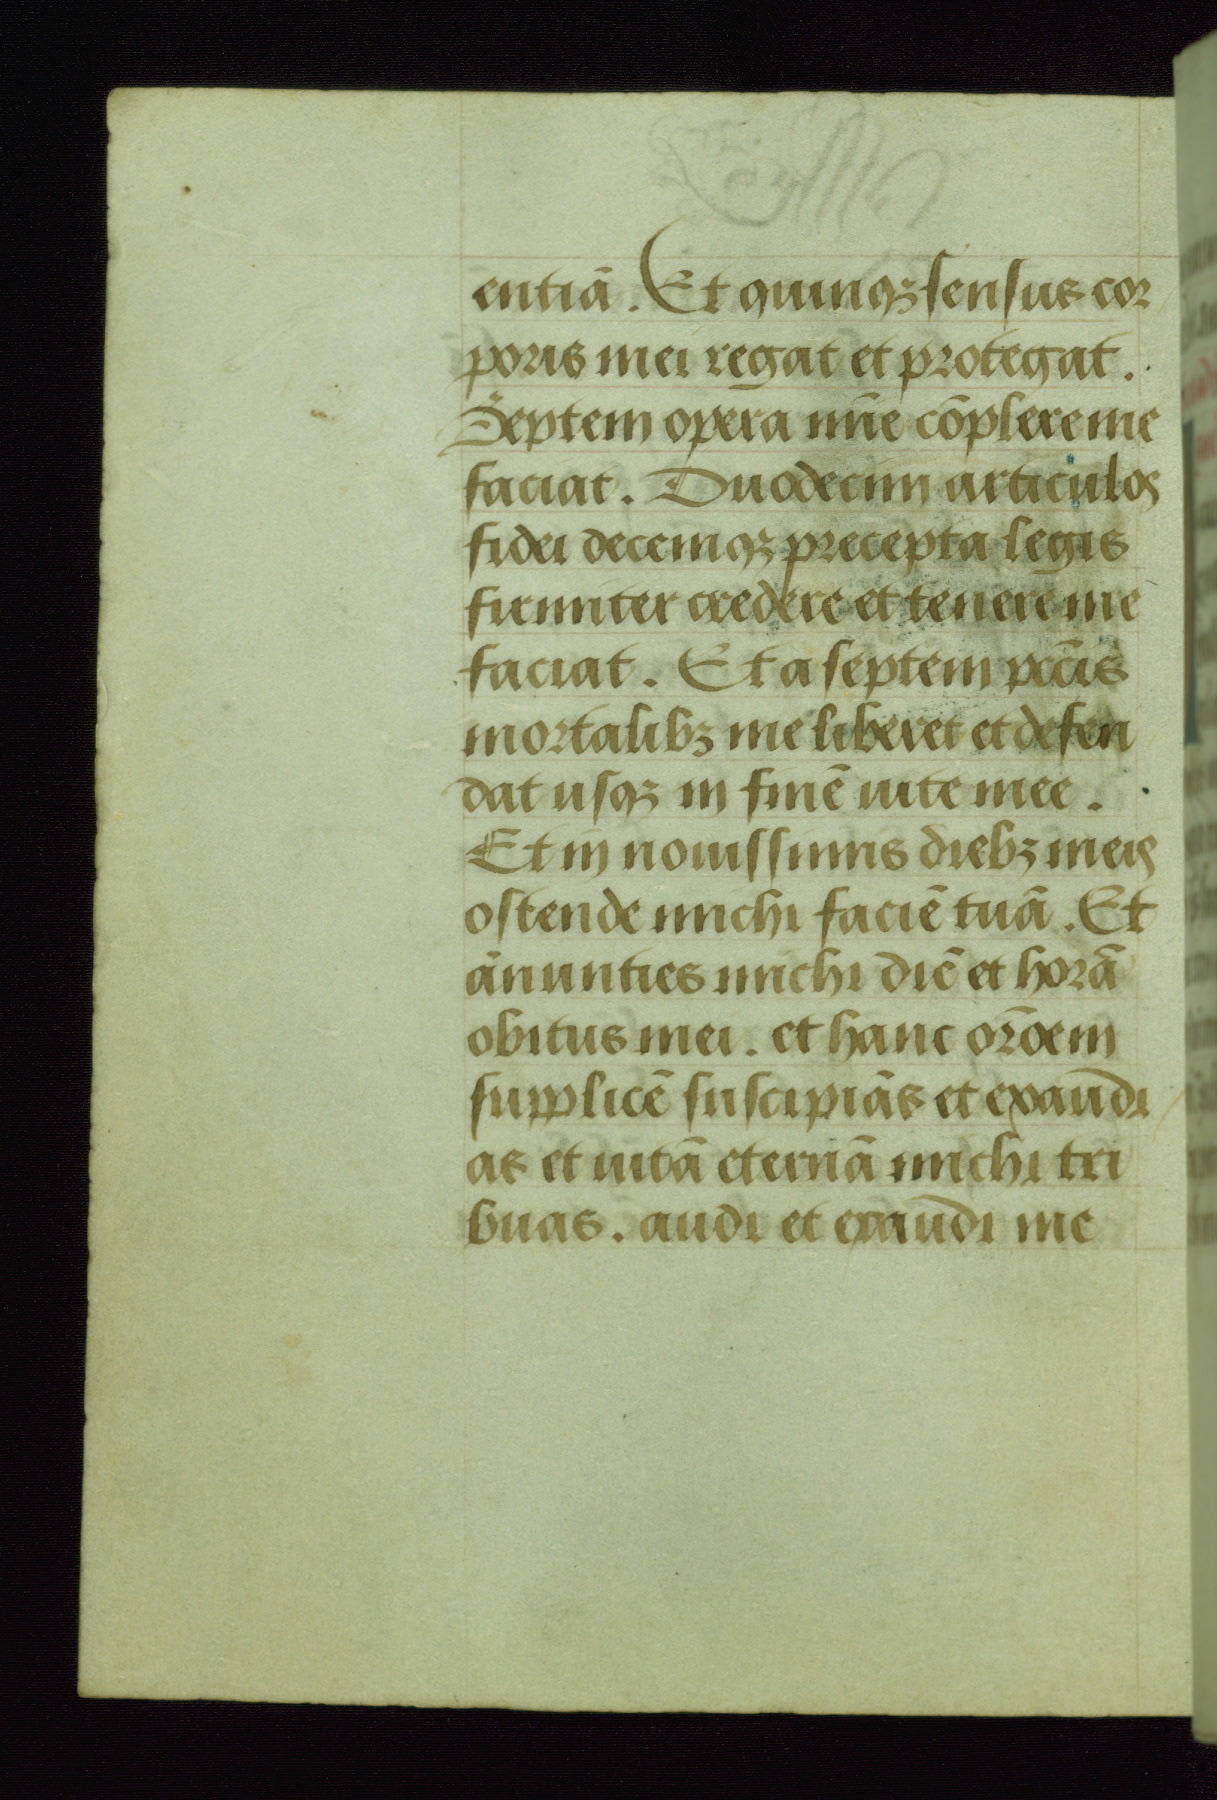 entiā. Et quinqꝫ sensus cor
poris mei regat et protegat.
Septem opera mīe cōplere me
faciat. Duodecim articulos
fidei decemqꝫ precepta legis
firmiter credere et tenere me
faciat. Et a septem pctīs
mortalibꝫ me liberet et defen
dat usqꝫ in finē uite mee.
Et in nouissimis diebꝫ meis
ostende michi faciē tuā. Et
ānunties michi diē et horā
obitus mei. et hanc orōem
supplicē suscipiās et exaudi
as et uitā eternā michi tri
buas. audi et exaudi me